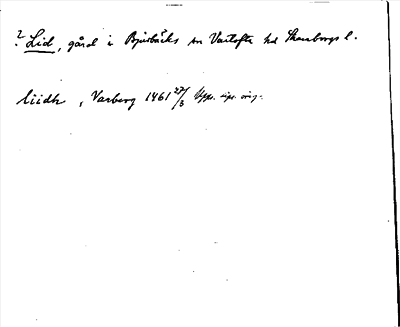 ? Lid, gård i Bjurbäcks sn Vartofta hd Skaraborgs l.
Liidh, Varberg 1461 27/3 Upps. orig.